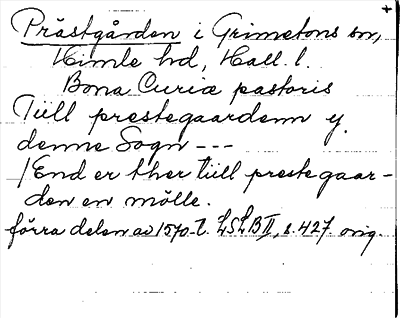 Prästgården i Grimetons sn,
Himle hd, Hall. l.
Bona Curiæ pastoris
Tiill prestegaardenn y
denne Sogn ---
/End er ther tiill prestegaar-
den en mölle.
förra delen av 1570-t. LSLB II, s. 427. orig.